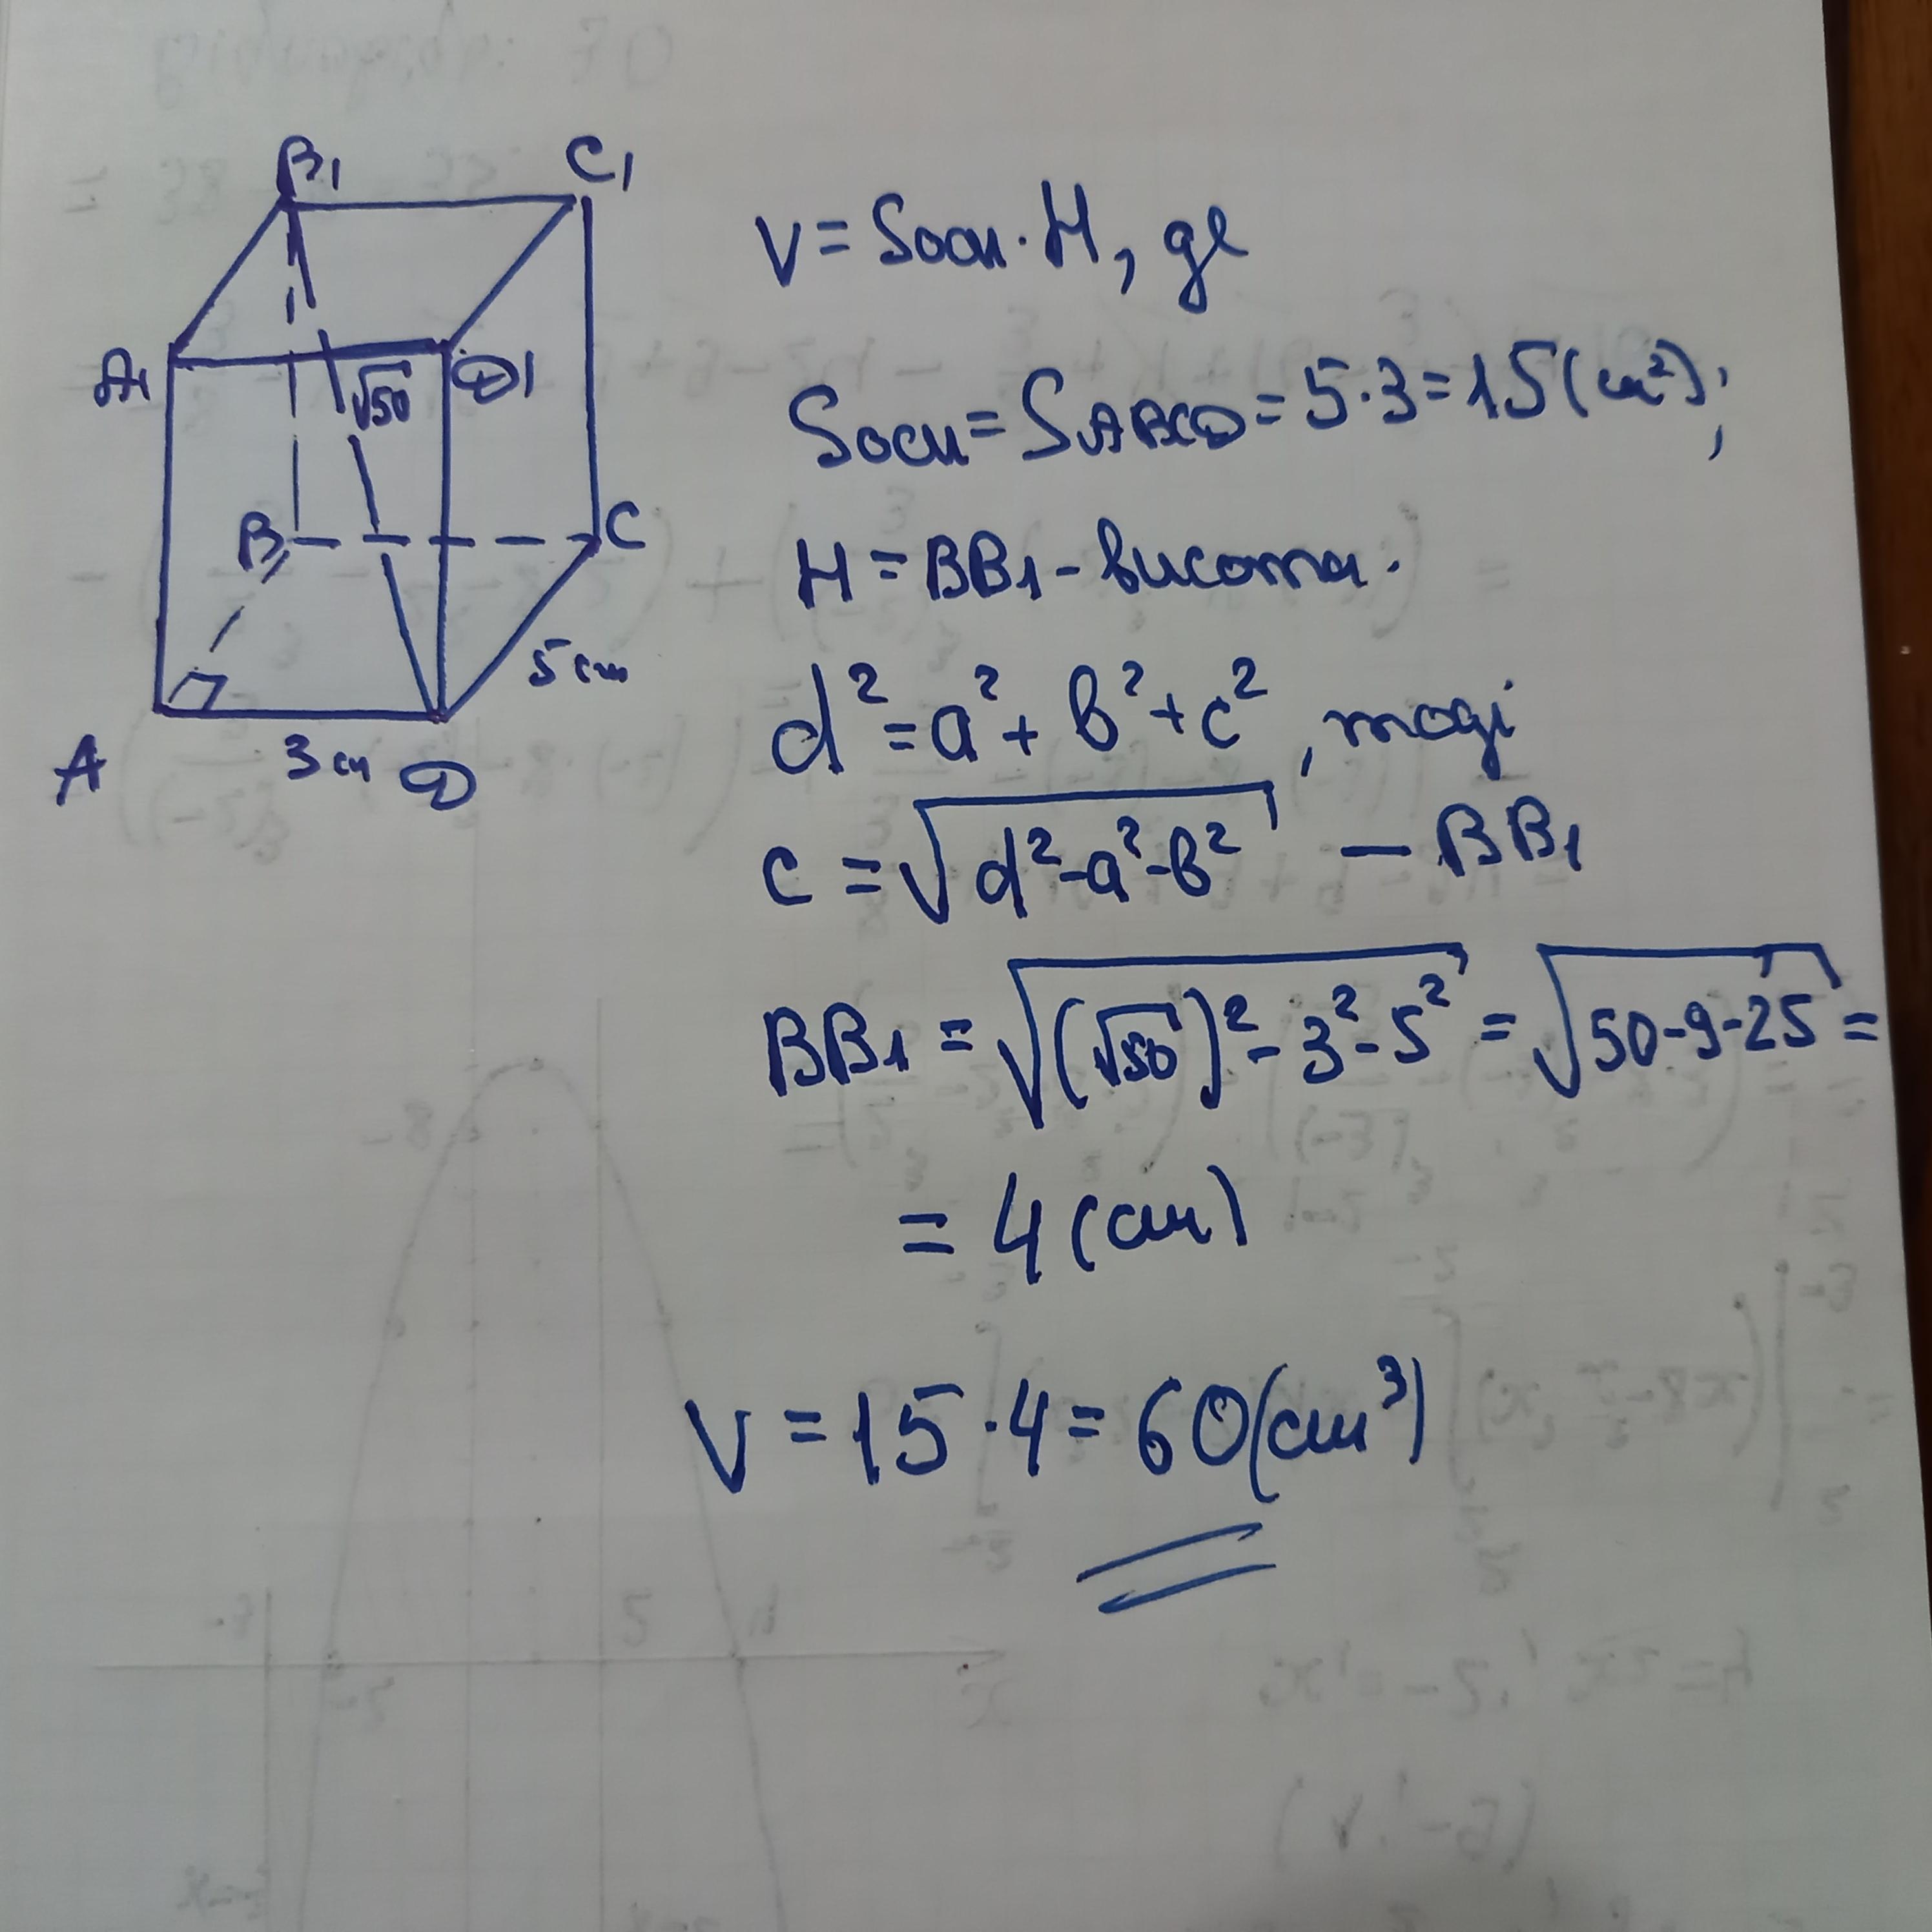 B₁
C₁
A₁
√50
D₁
B
C
5 см
A
3 см
D
V = Sосн · H, де
Sосн = SABCD = 5 · 3 = 15 (см²);
H = BB₁ - висота.
d² = a² + b² + c², тоді
c = √(d² - a² - b²) — BB₁
BB₁ = √((√50)² - 3² - 5²) = √(50 - 9 - 25) =
= 4 (см)
V = 15 · 4 = 60 (см³)